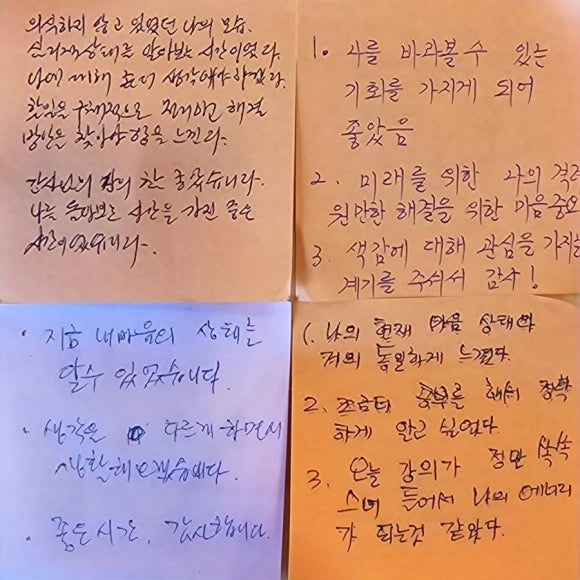 의식하지 않고 있었던 나의 모습.
심리적상태를 알아보는 시간이었다.
나에 대해 좀더 생각해야 하겠다.
할일을 구체적으로 정리하고 해결
방안을 찾아야 함을 느낀다.
강사님의 강의 참 좋았습니다.
나를 돌아보는 시간을 가진 좋은
시간이었습니다.
1. 나를 바라볼 수 있는
기회를 가지게 되어
좋았음
2. 미래를 위한 나의 격려
원만한 해결을 위한 마음중요
3. 색감에 대해 관심을 가지는
계기를 주셔서 감사!
· 지금 내마음의 상태를
알수 있었습니다.
· 생각을 다르게 하면서
생활해 보겠습니다.
· 좋은 시간, 감사합니다.
1. 나의 현재 마음 상태와
거의 동일하게 느꼈다.
2. 조금더 공부를 해서 정확
하게 알고 싶었다.
3. 오늘 강의가 정말 쏙쏙
스며 들어서 나의 에너지
가 되는것 같았다.